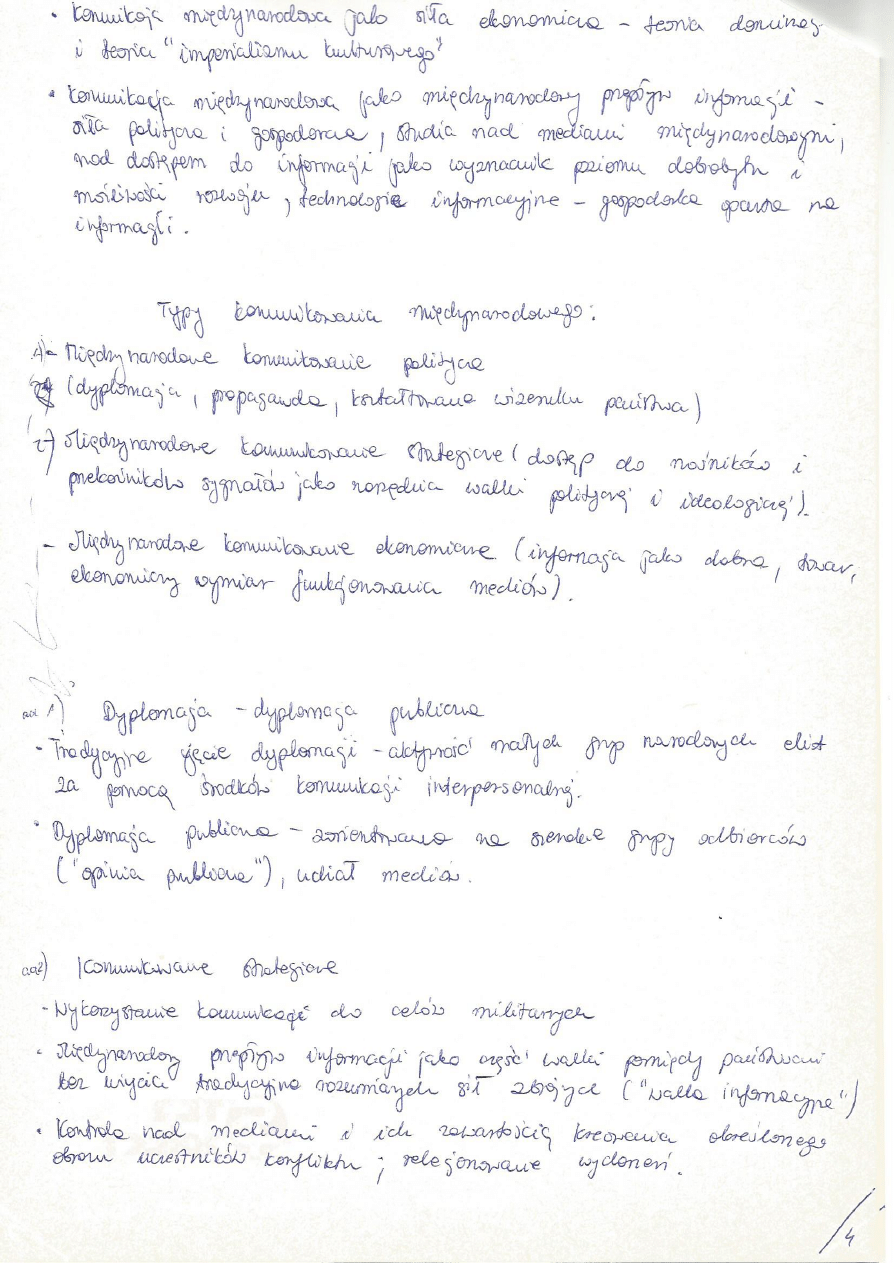 • Komunikacja międzynarodowa jako siła ekonomiczna – teoria dominacj
i teoria "imperializmu kulturowego"
• Komunikacja międzynarodowa jako międzynarodowy przepływ informacji –
siła polityczna i gospodarcza, studia nad mediami międzynarodowymi,
nad dostępem do informacji jako wyznacznik poziomu dobrobytu i
możliwości rozwoju, technologie informacyjne – gospodarka oparta na
informacji.
Typy komunikowania międzynarodowego:
1) – Międzynarodowe komunikowanie polityczne
(dyplomacja, propaganda, kształtowanie wizerunku państwa)
2) Międzynarodowe komunikowanie strategiczne (dostęp do nośników i
przekaźników sygnałów jako narzędzia walki politycznej i ideologicznej).
– Międzynarodowe komunikowanie ekonomiczne (informacja jako dobro, towar,
ekonomiczny wymiar funkcjonowania mediów).
ad 1) Dyplomacja – dyplomacja publiczna
• Tradycyjne ujęcie dyplomacji – aktywność małych grup narodowych elit
za pomocą środków komunikacji interpersonalnej.
• Dyplomacja publiczna – zorientowana na szerokie grupy odbiorców
("opinia publiczna"), udział mediów.
ad2) Komunikowanie strategiczne
- Wykorzystanie komunikacji do celów militarnych
• Międzynarodowy przepływ informacji jako część walki pomiędzy państwami
bez użycia tradycyjnie rozumianych sił zbrojnych ("walka informacyjna")
• Kontrola nad mediami i ich zawartością kreowania określonego
obrazu uczestników konfliktu; relacjonowanie wydarzeń.
4